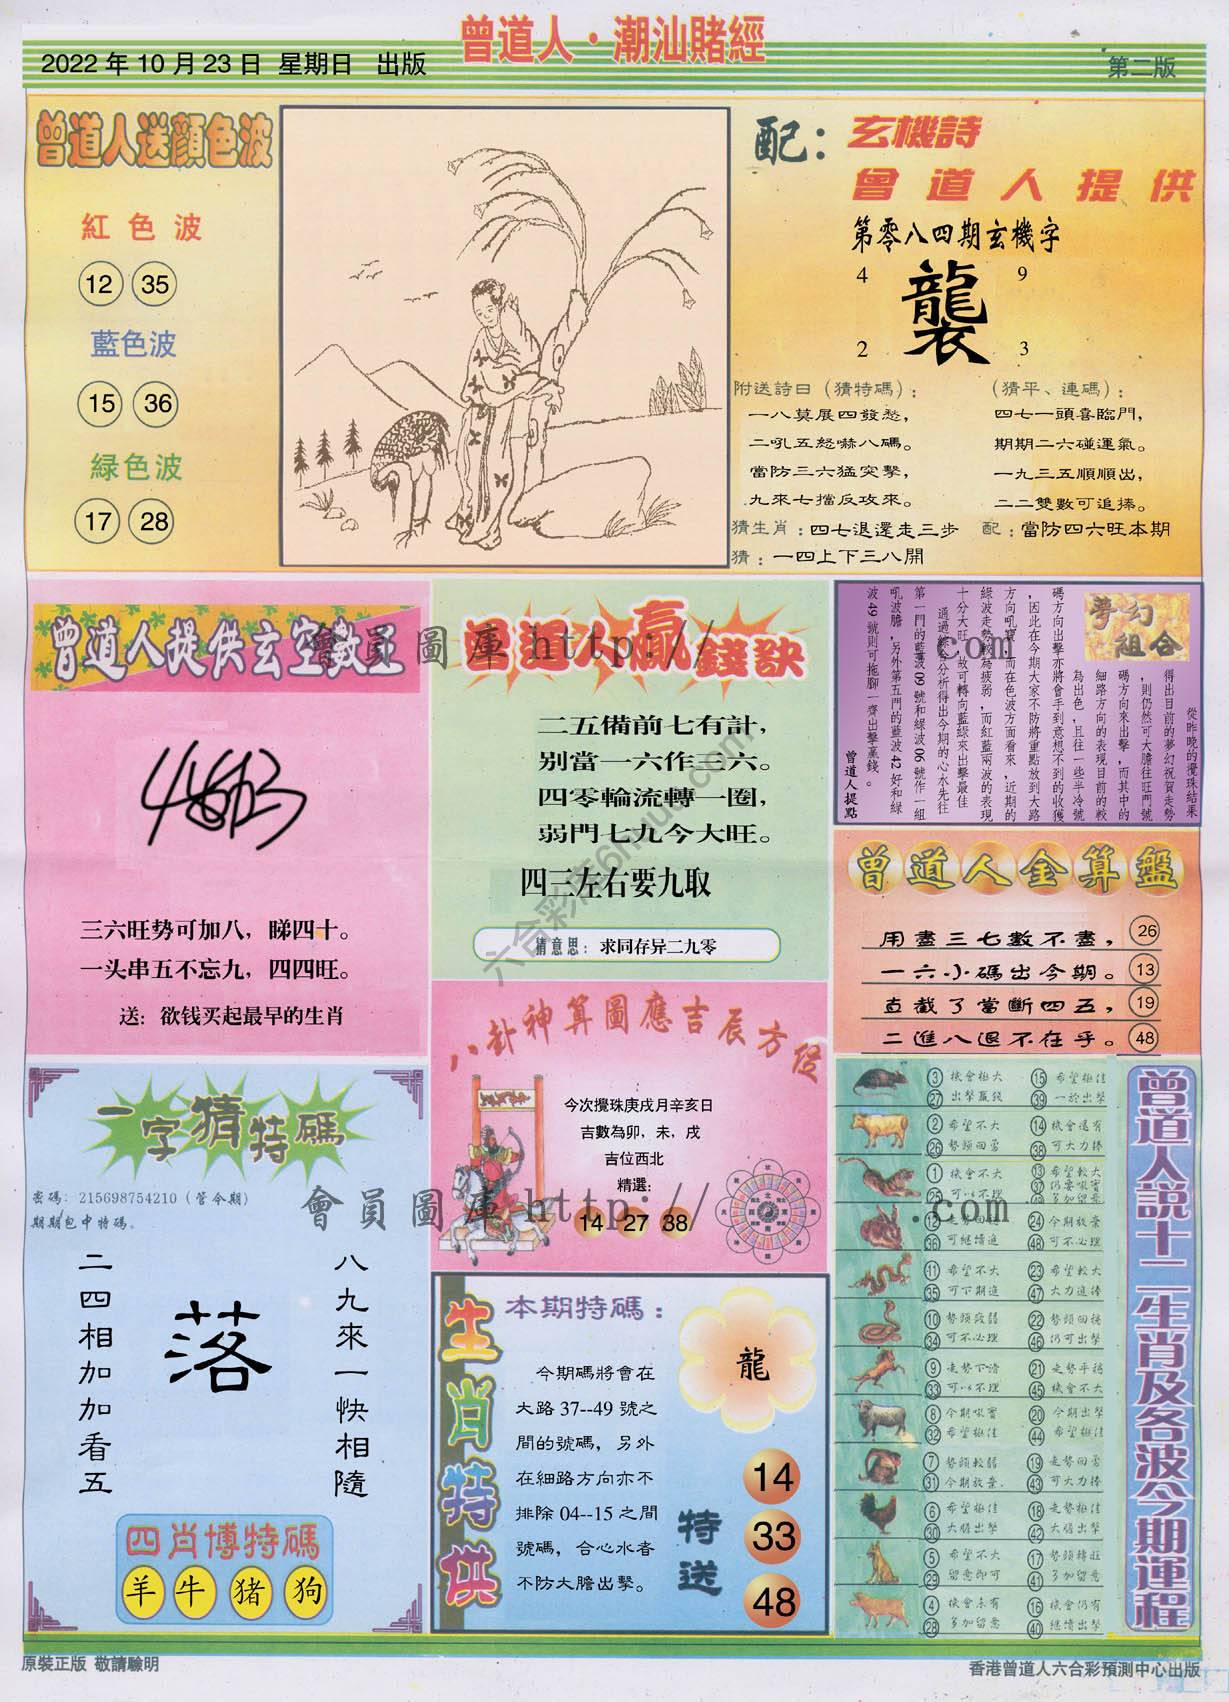 曾道人·潮汕賭經
2022 年 10 月 23 日 星期日 出版
第二版
曾道人送顏色波
紅色波
12 35
藍色波
15 36
緑色波
17 28
配：
玄機詩
曾道人提供
第零八四期玄機字
4 9
襲
2 3
附送詩曰（猜特碼）：
一八莫展四發愁，
二吼五怒嚇八碼。
當防三六猛突擊，
九來七擋反攻來。
（猜平、連碼）：
四七一頭喜臨門，
期期二六碰運氣。
一九三五順順出，
二二雙數可追捧。
猜生肖：四七退還走三步
配：當防四六旺本期
猜：一四上下三八開
曾道人提供玄空數王
三六旺势可加八，睇四十。
一头串五不忘九，四四旺。
送：欲钱买起最早的生肖
曾道人贏錢訣
二五備前七有計，
别當一六作三六。
四零輪流轉一圈，
弱門七九今大旺。
四三左右要九取
猜意思：求同存异二九零
夢幻組合
從昨晚的攪珠結果
得出目前的夢幻祝賀走勢
，則仍然可大膽往旺門號
碼方向來出擊，而其中的
細路方向的表現目前的較
為出色，且往一些半冷號
碼方向出擊亦將會手到意想不到的收獲
，因此在今期大家不防將重點放到大路
方向吼寶，而在色波方面看來，近期的
綠波走勢較為疲弱，而紅藍兩波的表現
十分大旺，故可轉向藍綠來出擊最佳
通過綜合分析得出今期的心水先往
第一門的藍波09號和綠波06號作一組
吼波膽，另外第五門的藍波42好和綠
波49號則可拖腳一齊出擊贏錢。
曾道人提點
曾道人金算盤
用盡三七數不盡， 26
一六小碼出今期。 13
直截了當斷四五， 19
二進八退不在乎。 48
八卦神算圖應吉辰方位
今次攪珠庚戌月辛亥日
吉數為卯，未，戌
吉位西北
精選：
14 27 38
一字猜特碼
密碼：215698754210（管今期）
期期包中特碼。
二四相加加看五
落
八九來一快相隨
四肖博特碼
羊 牛 猪 狗
生肖特供
本期特碼：
龍
今期碼將會在
大路 37--49 號之
間的號碼，另外
在細路方向亦不
排除 04--15 之間
號碼，合心水者
不防大膽出擊。
特送
14
33
48
曾道人説十二生肖及各波今期運程
3 機會極大 15 希望極佳
27 出擊贏錢 39 一於出擊
2 希望不大 14 機會還有
26 勢頭回勇 38 可大力捧
1 機會不大 13 希望較大
25 可以不理 37 仍要吼實
多加留意
12 走勢回旺 24 今期放棄
36 可繼續追 48 可不必理
11 希望不大 23 希望較大
35 可下期追 47 大力追捧
10 勢頭疲弱 22 勢頭回揚
34 可不必理 46 仍可出擊
9 走勢下滑 21 走勢平穩
33 可以不理 45 機會不大
8 今期吼實 20 今期出擊
32 希望極佳 44 希望極佳
7 勢頭較弱 19 走勢回勇
31 今期放棄 43 可大力捧
6 希望極佳 18 走勢極佳
30 大膽出擊 42 大膽出擊
5 希望不大 17 勢頭轉旺
29 留意即可 41 多加留意
4 機會未有 16 機會仍有
28 多加留意 40 繼續出擊
會員圖庫 http:// .com
會員圖庫 http:// .com
原裝正版 敬請驗明
香港曾道人六合彩預測中心出版